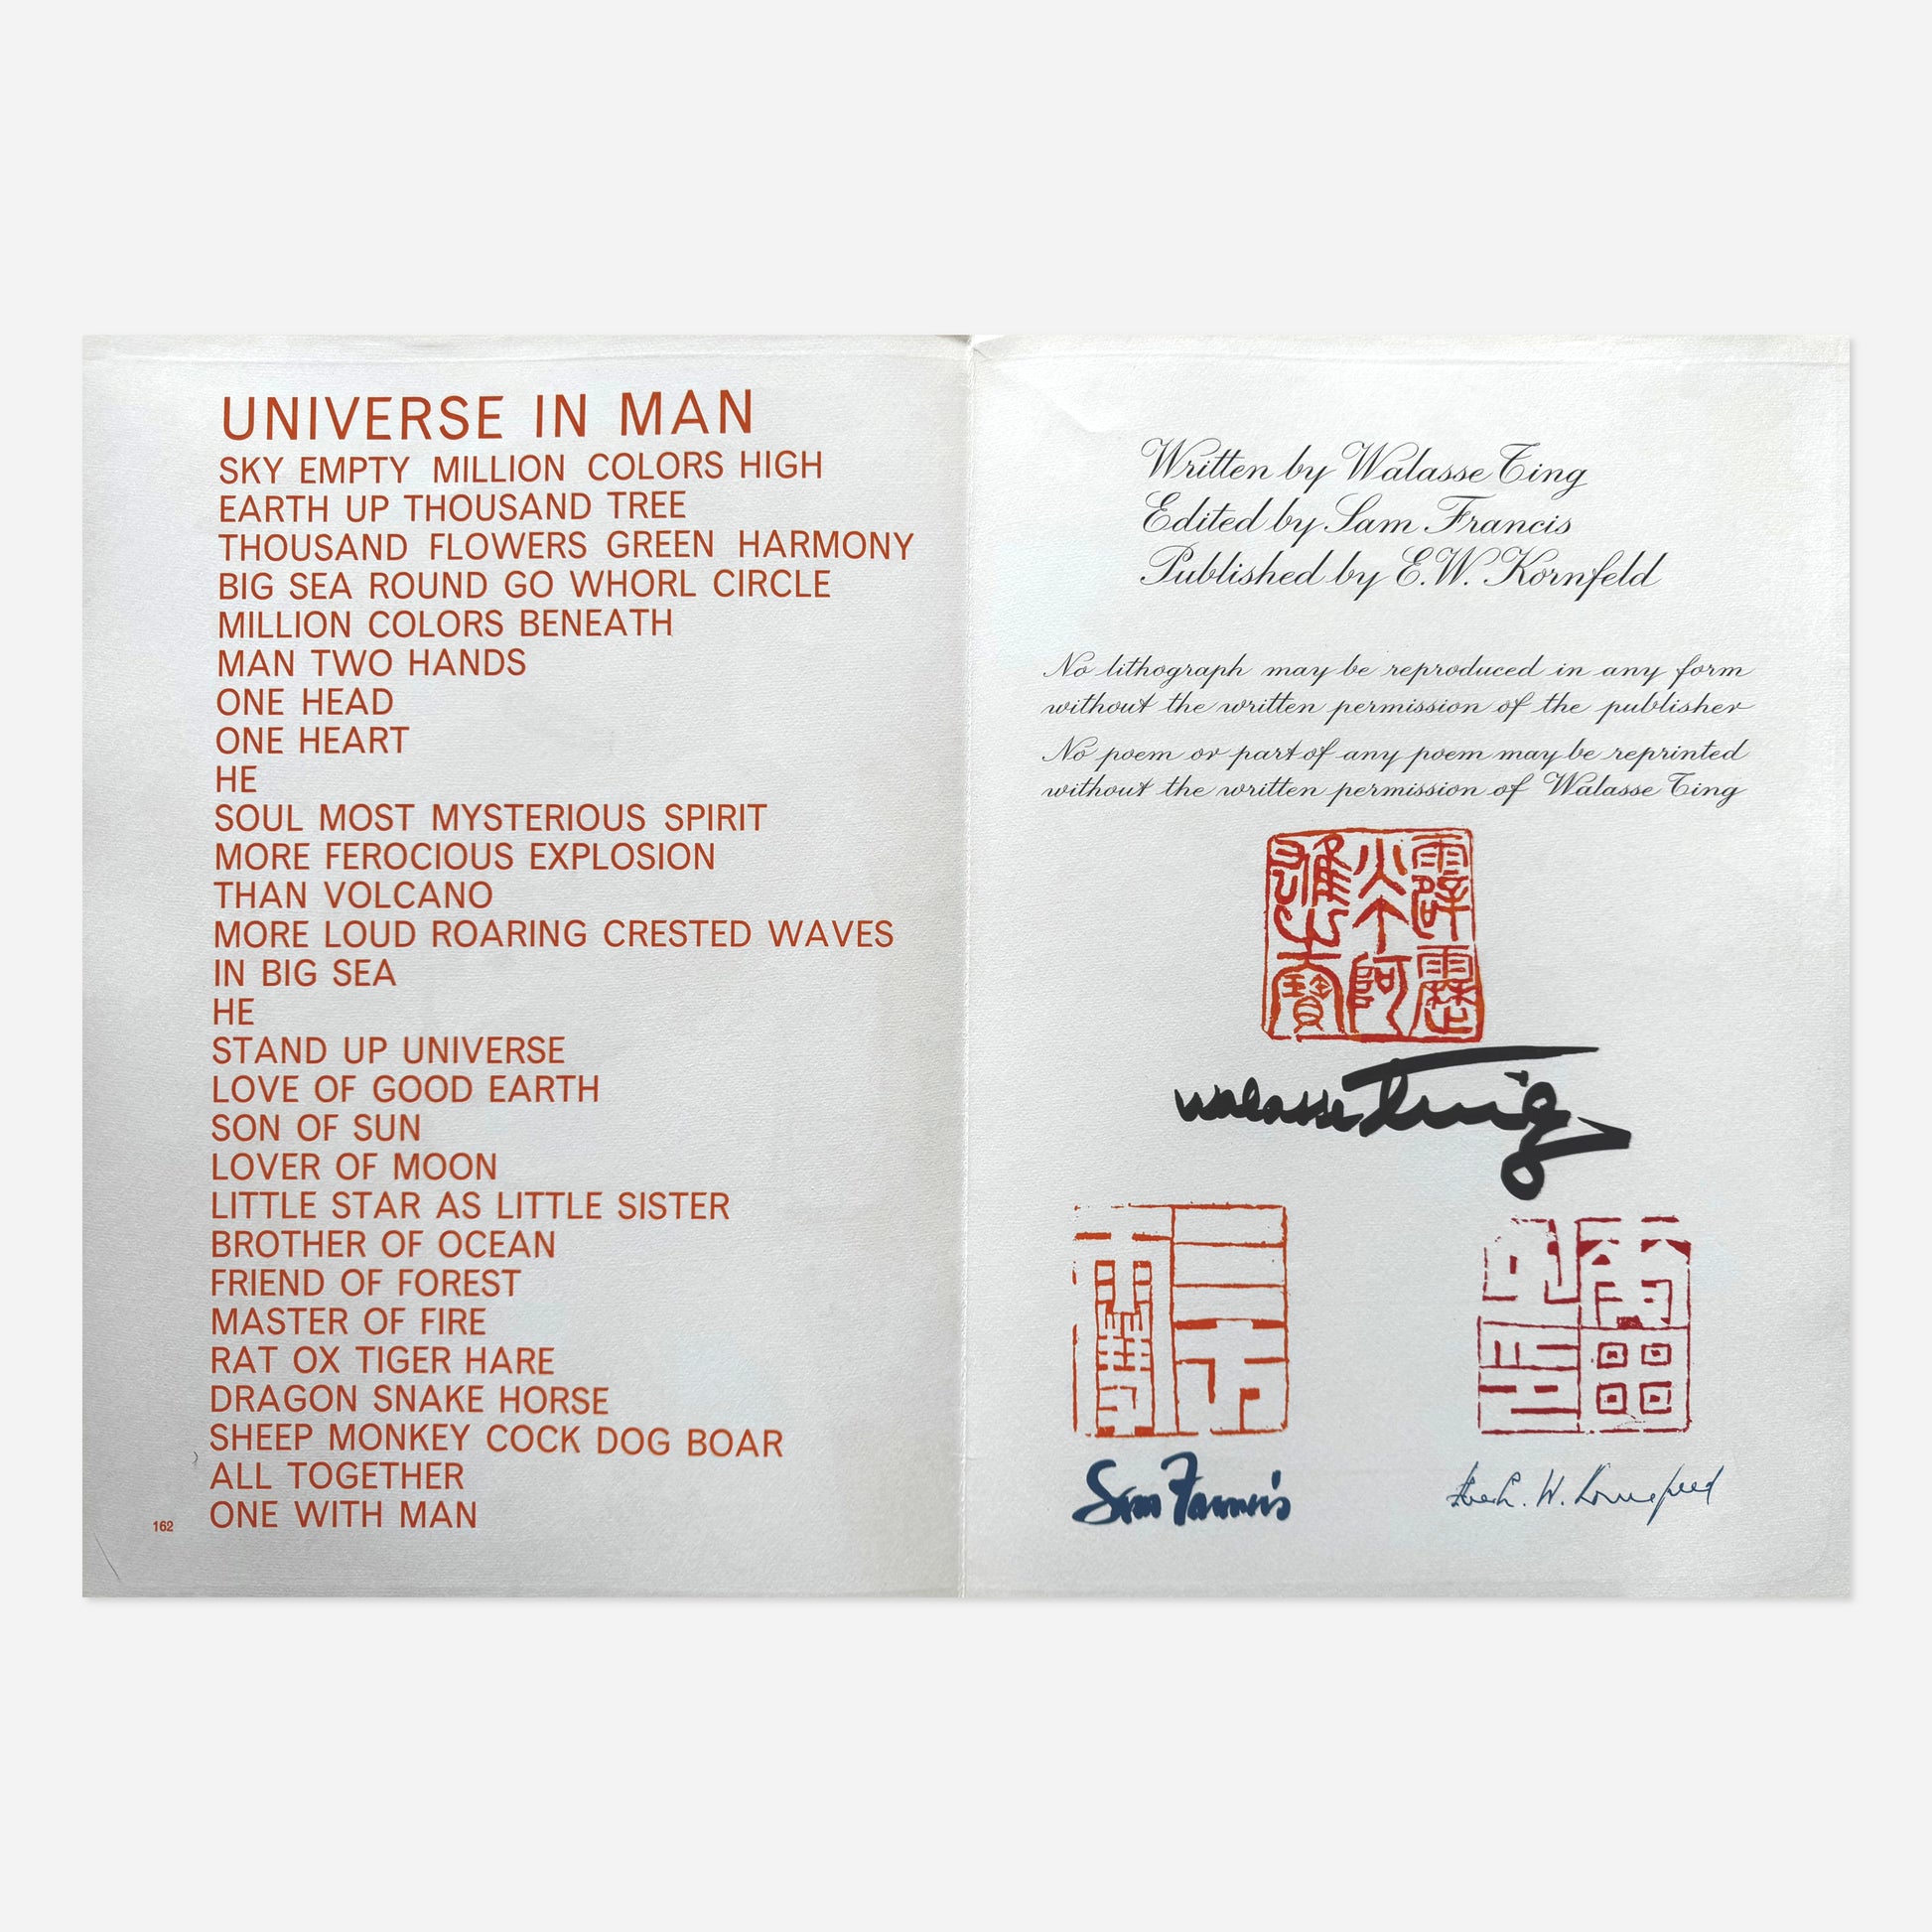 UNIVERSE IN MAN
SKY EMPTY MILLION COLORS HIGH
EARTH UP THOUSAND TREE
THOUSAND FLOWERS GREEN HARMONY
BIG SEA ROUND GO WHORL CIRCLE
MILLION COLORS BENEATH
MAN TWO HANDS
ONE HEAD
ONE HEART
HE
SOUL MOST MYSTERIOUS SPIRIT
MORE FEROCIOUS EXPLOSION
THAN VOLCANO
MORE LOUD ROARING CRESTED WAVES
IN BIG SEA
HE
STAND UP UNIVERSE
LOVE OF GOOD EARTH
SON OF SUN
LOVER OF MOON
LITTLE STAR AS LITTLE SISTER
BROTHER OF OCEAN
FRIEND OF FOREST
MASTER OF FIRE
RAT OX TIGER HARE
DRAGON SNAKE HORSE
SHEEP MONKEY COCK DOG BOAR
ALL TOGETHER
ONE WITH MAN
162
Written by Walasse Ting
Edited by Sam Francis
Published by E.W. Kornfeld
No lithograph may be reproduced in any form
without the written permission of the publisher
No poem or part of any poem may be reprinted
without the written permission of Walasse Ting
walasse Ting
Sam Francis
W. Kornfeld